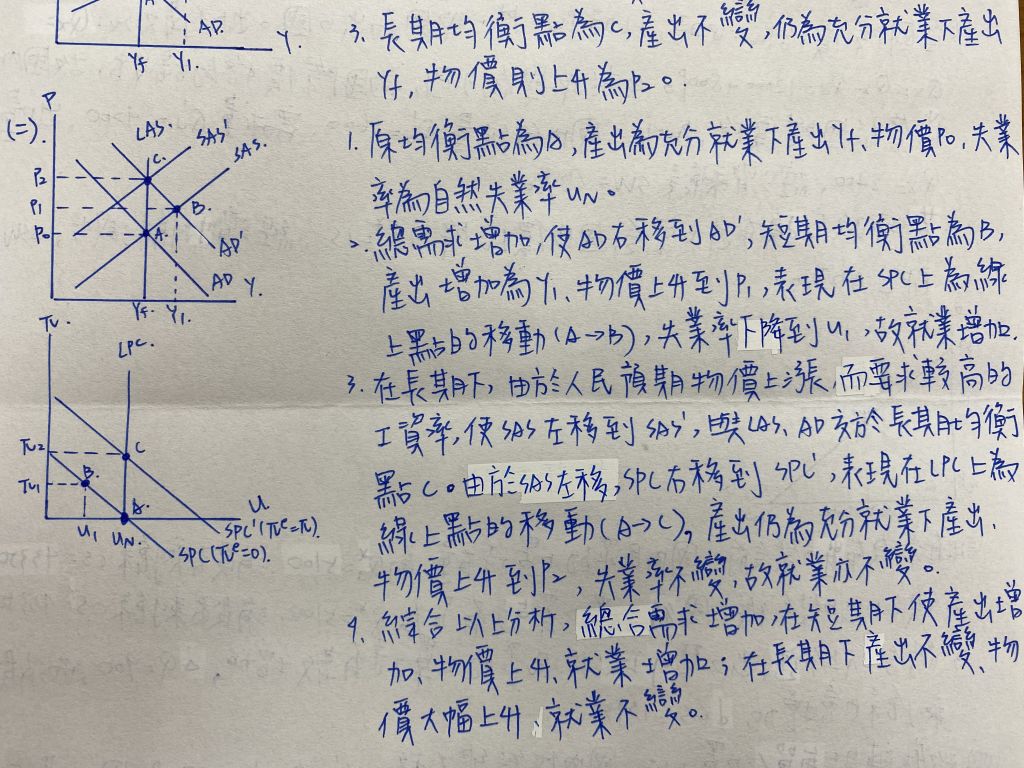 AD.
Y.
Yf
Y1.
3. 長期均衡點為C, 產出不變, 仍為充分就業下產出
Yf, 物價則上升為P2。
(二).
P
LAS
SAS'
SAS.
C.
P2
P1
B.
P0
A.
AD'
AD
Y.
Yf.
Y1.
1. 原均衡點為A, 產出為充分就業下產出Yf、物價P0、失業
率為自然失業率UN。
2. 總需求增加, 使AD右移到AD', 短期均衡點為B,
產出增加為Y1、物價上升到P1, 表現在SPC上為線
上點的移動(A→B), 失業率下降到U1, 故就業增加.
3. 在長期下, 由於人民預期物價上漲, 而要求較高的
工資率, 使SAS左移到SAS', 與LAS、AD交於長期均衡
點C。由於SAS左移, SPC右移到SPC', 表現在LPC上為
線上點的移動(A→C), 產出仍為充分就業下產出、
物價上升到P2, 失業率不變, 故就業亦不變。
4. 綜合以上分析, 總合需求增加, 在短期下使產出增
加、物價上升、就業增加; 在長期下產出不變、物
價大幅上升、就業不變。
π.
LPC.
π2
C
π1
B.
A.
U.
U1
UN.
SPC'(πe=π).
SPC(πe=0).